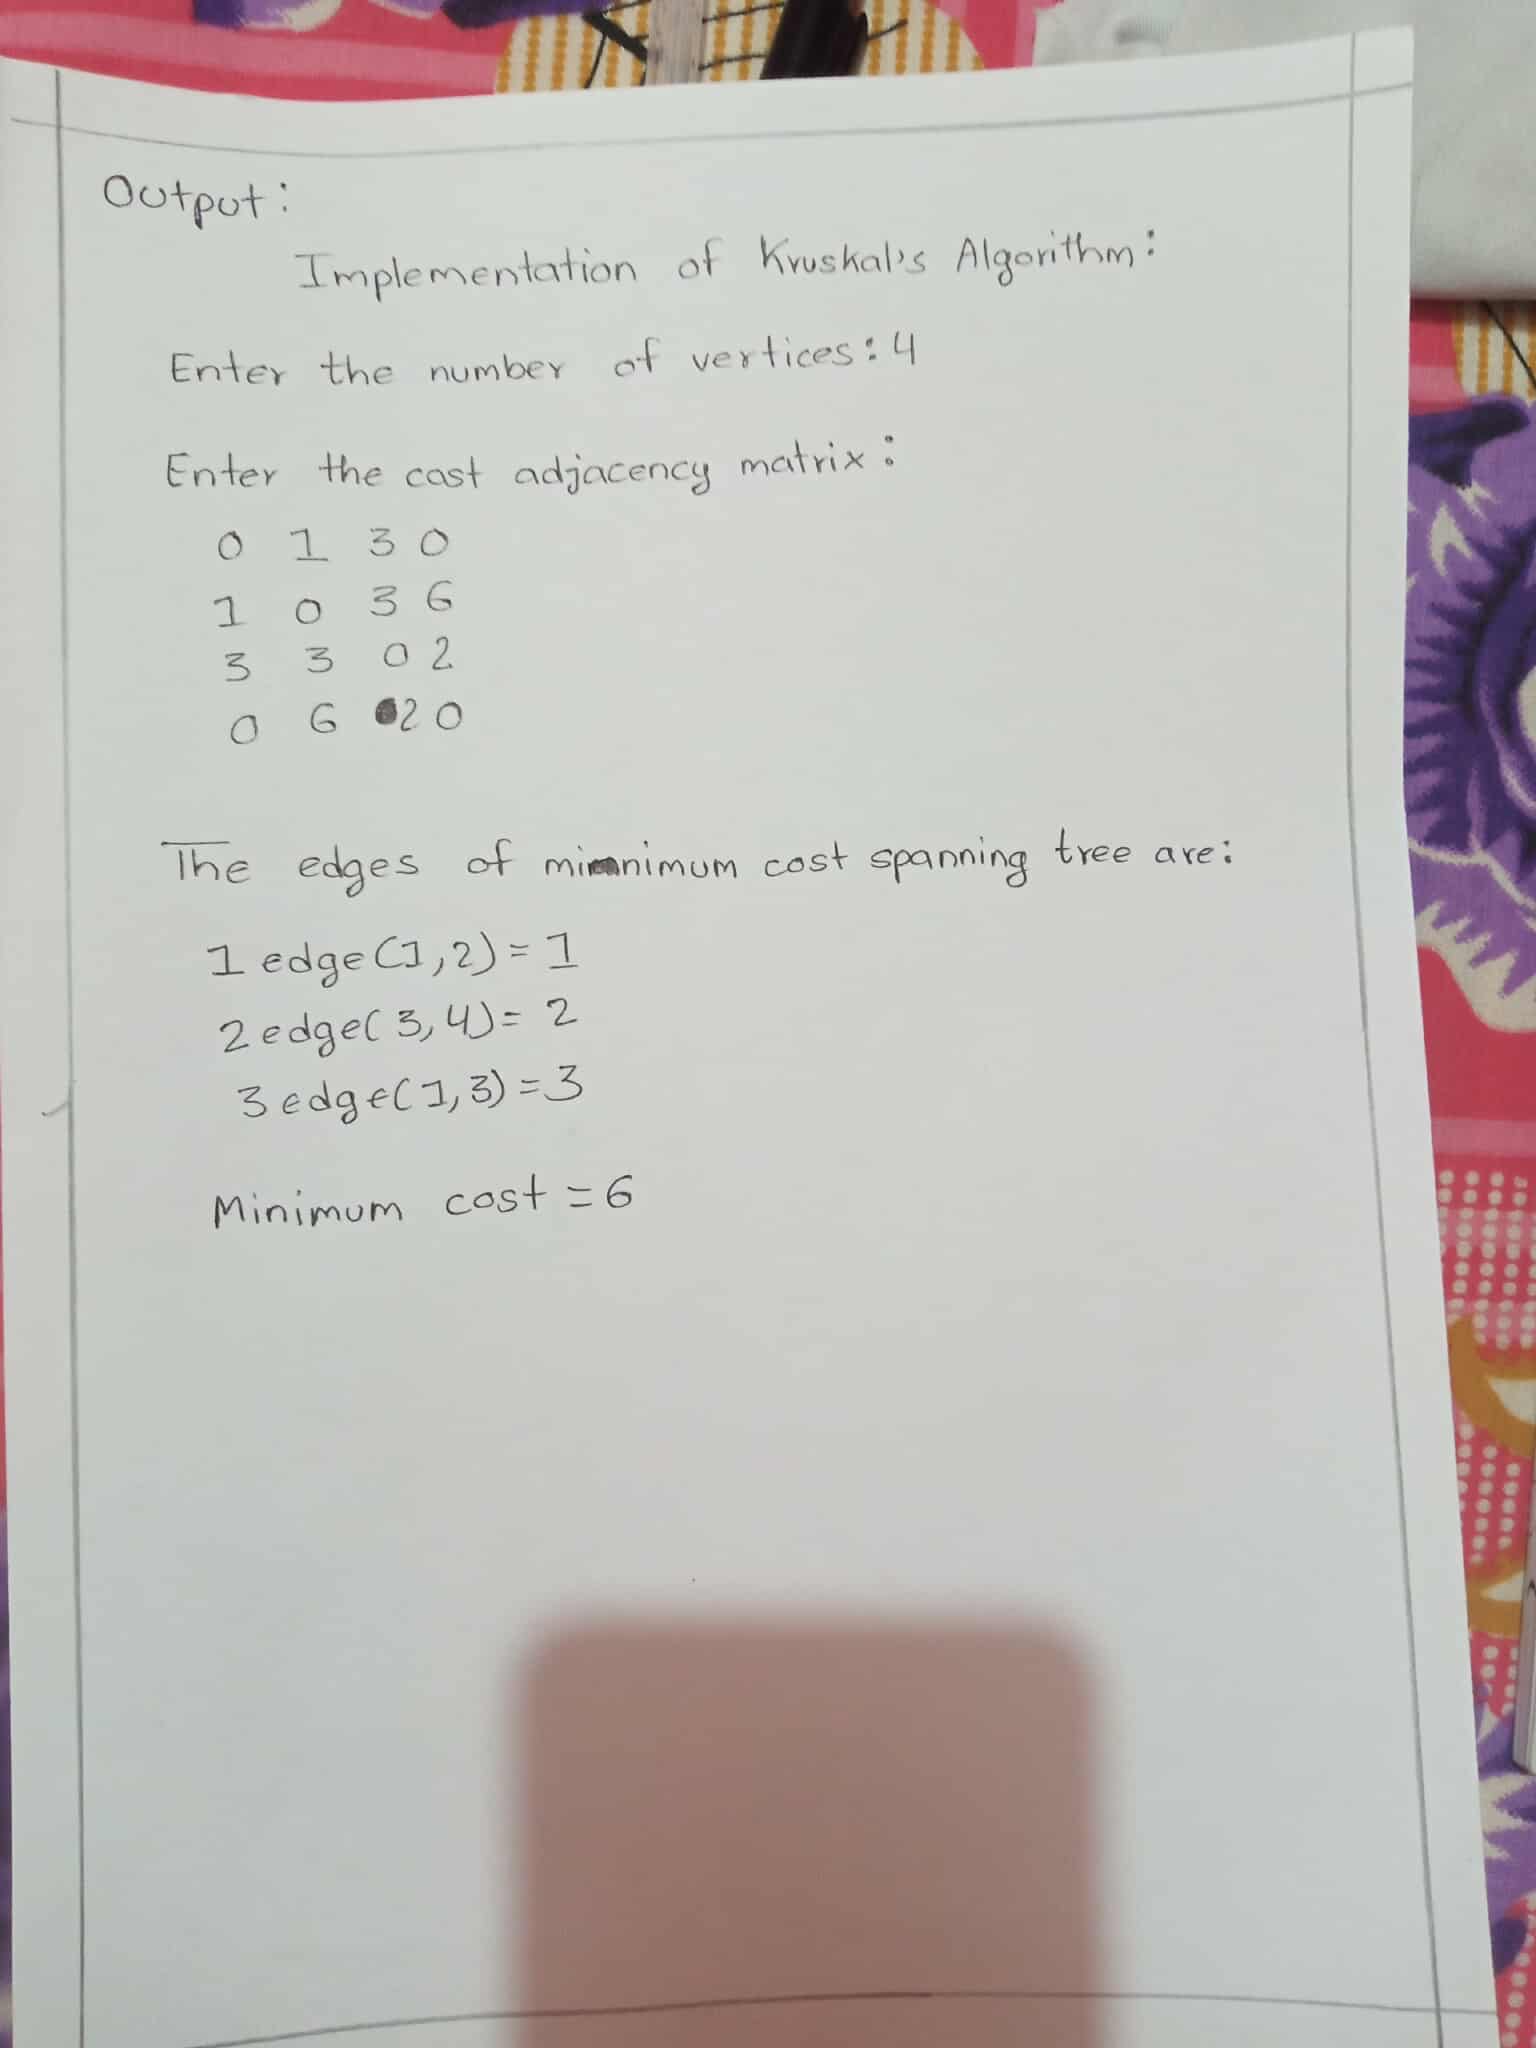 Output:
Implementation of Kruskal's Algorithm:
Enter the number of vertices: 4
Enter the cost adjacency matrix:
0 1 3 0
1 0 3 6
3 3 0 2
0 6 2 0
The edges of minimum cost spanning tree are:
1 edge(1,2)=1
2 edge(3,4)=2
3 edge(1,3)=3
Minimum cost = 6